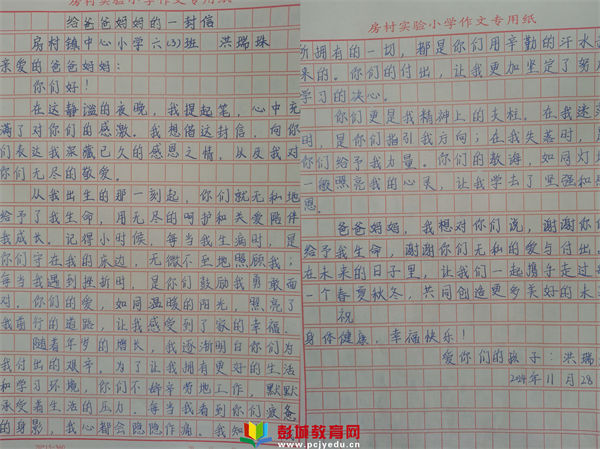 房村实验小学作文专用纸
给爸爸妈妈的一封信
房村镇中心小学六(3)班 洪瑞珠
亲爱的爸爸妈妈:
你们好!
在这静谧的夜晚,我提起笔,心中充
满了对你们的感激。我想借这封信,向你
们表达我深藏已久的感恩之情,以及我对
你们无尽的敬爱。
从我出生的那一刻起,你们就无私地
给予了我生命,用无尽的呵护和关爱陪伴
我成长。记得小时候,每当我生病时,是
你们守在我的床边,无微不至地照顾我;
每当我遇到挫折时,是你们鼓励我勇敢面
对,你们的爱,如同温暖的阳光,照亮了
我前行的道路,让我感受到了家的幸福。
随着年岁的增长,我逐渐明白你们为
我付出的艰辛,为了让我拥有更好的生活
和学习环境,你们不辞辛劳地工作,默默
承受着生活的压力,每当我看到你们疲惫
的身影,我心都会隐隐作痛。我知
房村实验小学作文专用纸
所拥有的一切,都是你们用辛勤的汗水
来的。你们的付出,让我更加坚定了努
学习的决心。
你们更是我精神上的支柱。在我迷
时,是你们指引我方向;在我失落时,是
你们给予我力量。你们的教诲,如同灯
一般照亮我的心灵,让我学会了坚强和
恩。
爸爸妈妈,我想对你们说,谢谢你
给予我生命,谢谢你们无私的爱与付出。
在未来的日子里,让我们一起携手走过
一个春夏秋冬,共同创造更多美好的未
祝
身体健康,幸福快乐!
爱你们的孩子:洪瑞
2024年11月28
彭城教育网
www.pcjyedu.cn